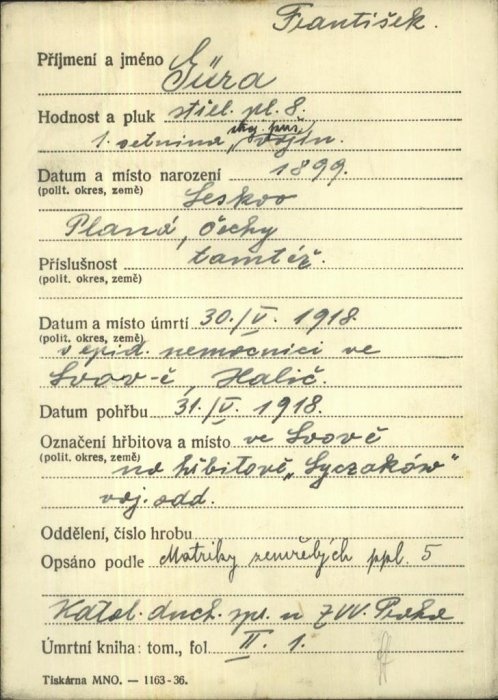 František.
Příjmení a jméno Güra
Hodnost a pluk střel. pl. 8.
1. setnina, vojín.
Datum a místo narození 1899.
(polit. okres, země) Leskov
Planá, Čechy
Příslušnost tamtéž.
(polit. okres, země)
Datum a místo úmrtí 30./V. 1918.
(polit. okres, země)
v epid. nemocnici ve
Lvov-ě, Halič.
Datum pohřbu 31./V. 1918.
Označení hřbitova a místo ve Lvově
(polit. okres, země) na hřbitově „Lyczaków"
voj. odd.
Oddělení, číslo hrobu
Opsáno podle Matriky zemřelých ppl. 5
Katol. duch. spr. u ZVV. Praha
Úmrtní kniha: tom., fol. II. 1.
Tiskárna MNO. — 1163-36.